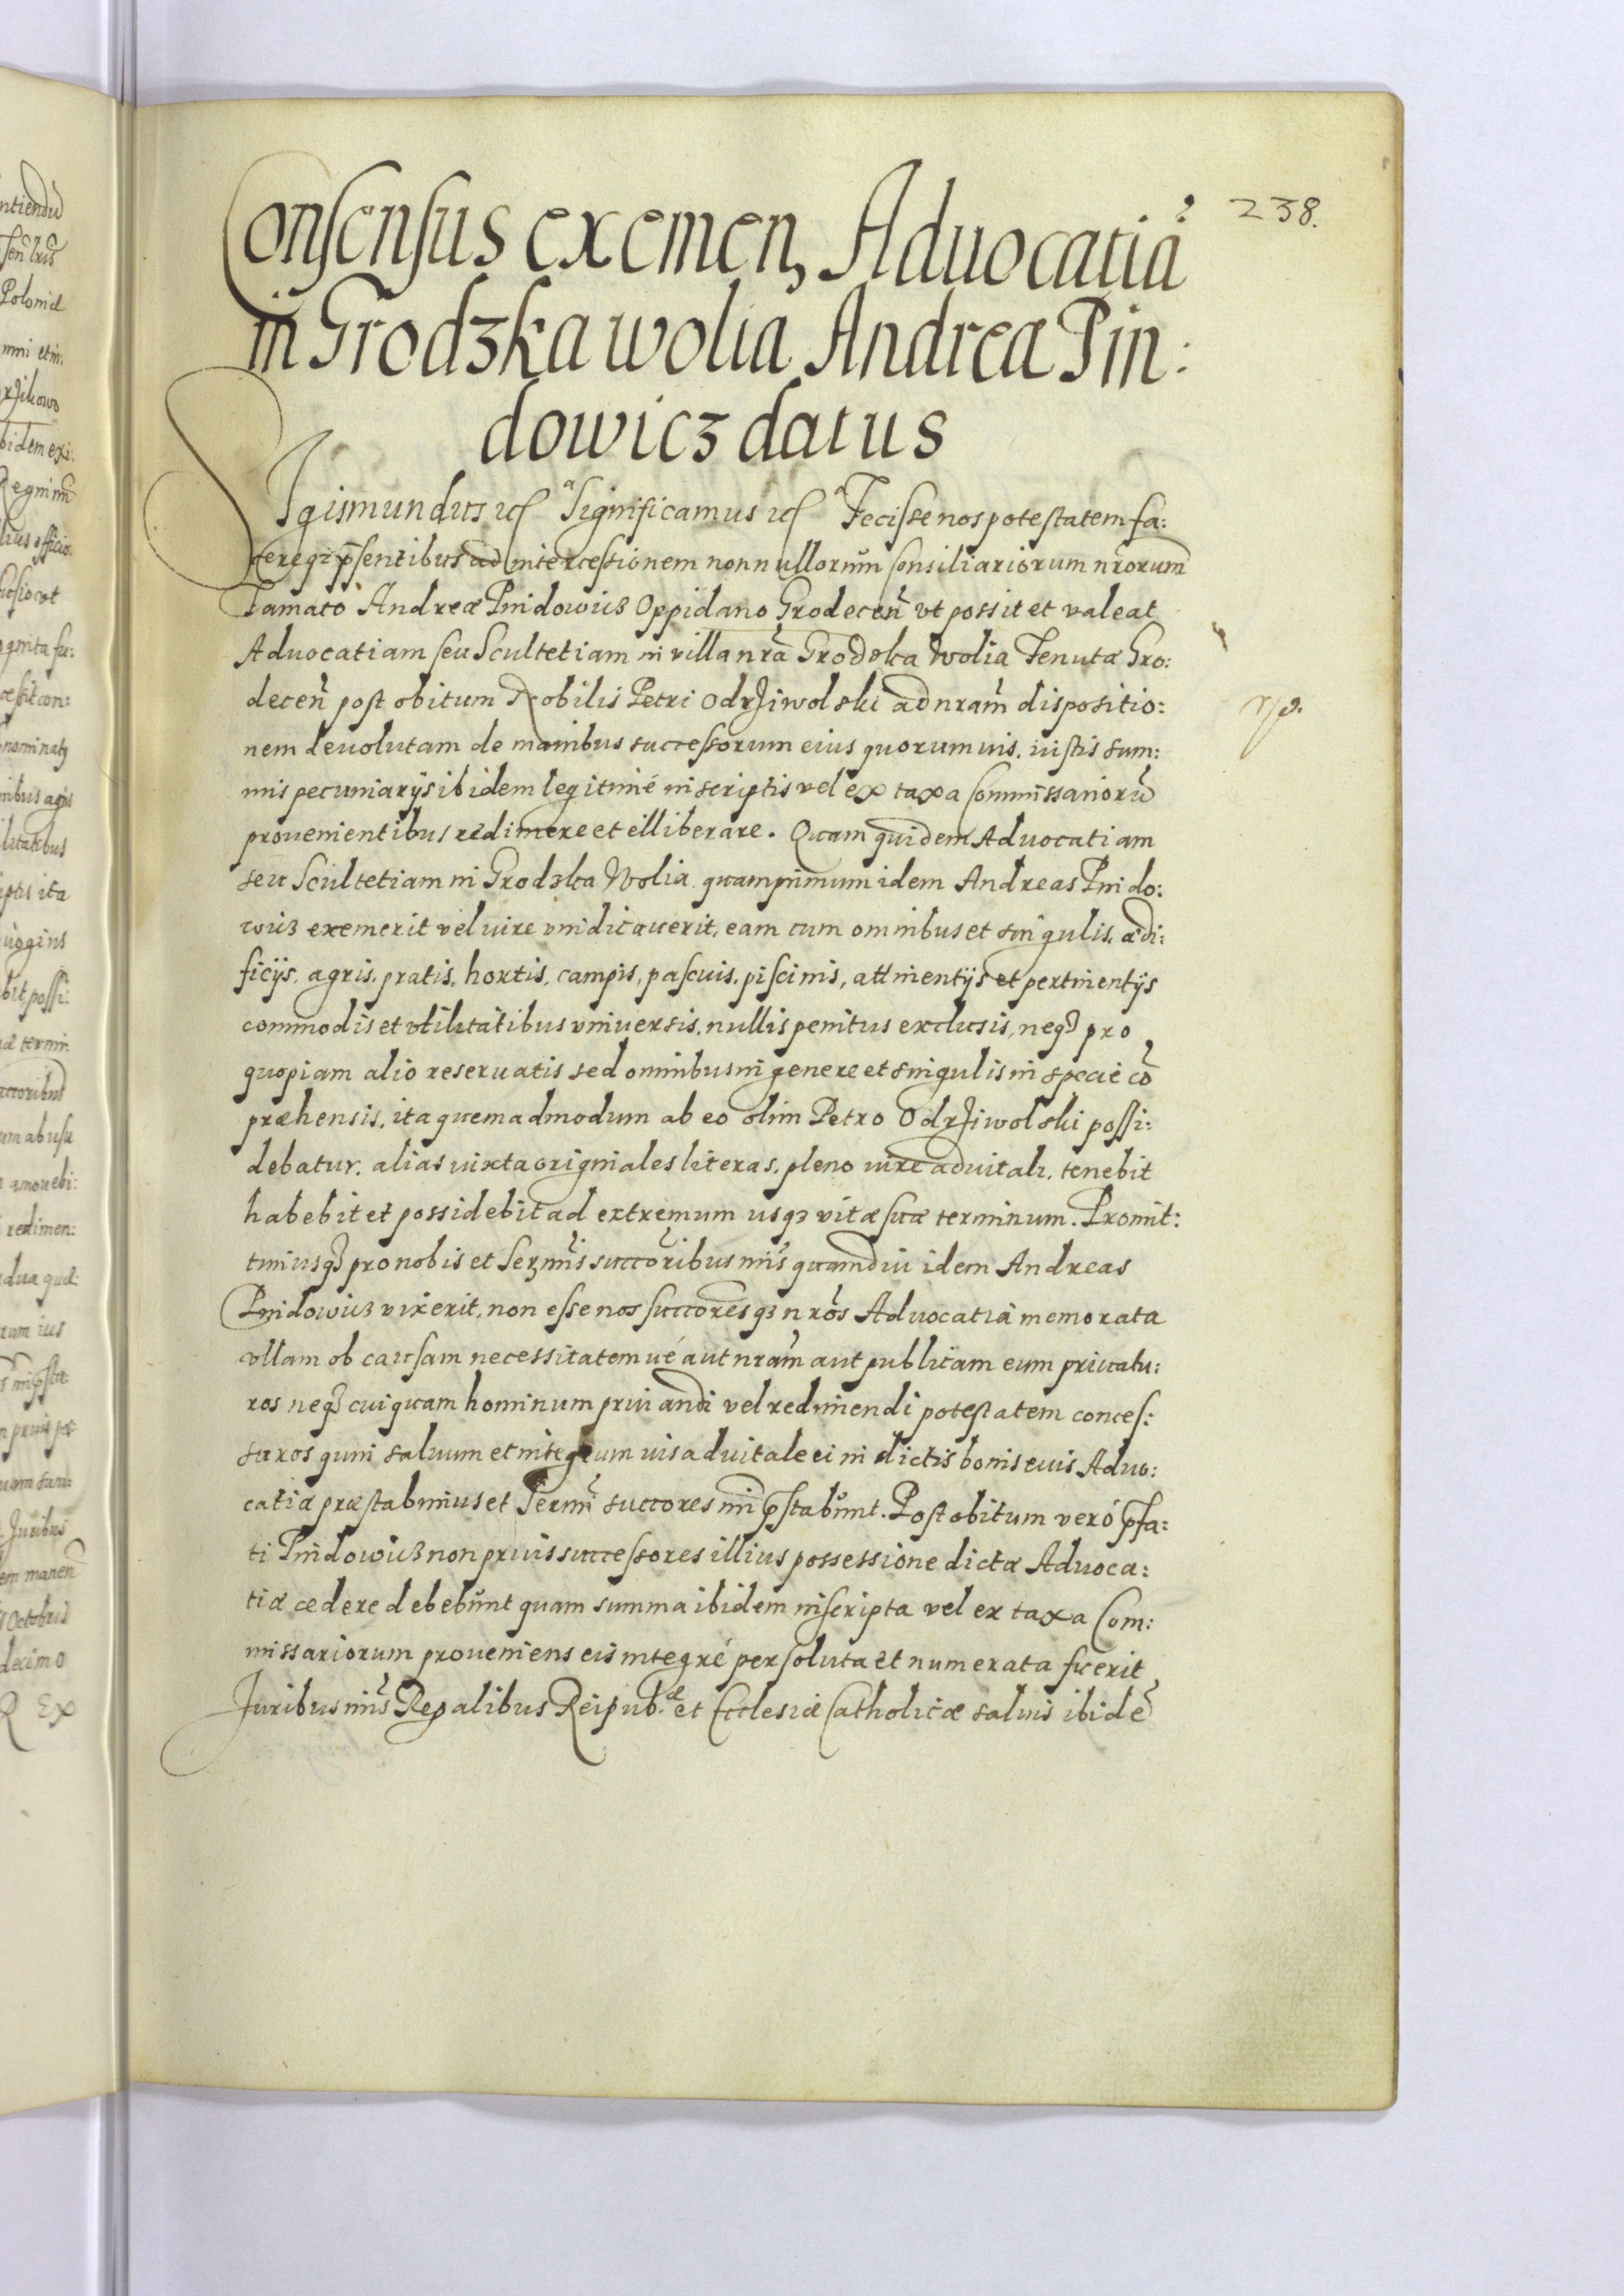 238.
Consensus exemen, Aduocatiã
in Grodzka wolia Andreæ Pin:
dowicz datus
Sigismundus etc Significamus etc Fecisse nos potestatem fa:
ceregz p̄sentibus ad intercessionem nonnullorum Consiliariorum nrōrum
Famato Andreæ Pindowicz Oppidano Grodeceñ vt possit et valeat
Aduocatiam seu Scultetiam in villa nrā Grodzka Wolia Tenutæ Gro:
deceñ post obitum Nobilis Petri Odrziwolski ad nrām dispositio:
nem deuolutam de manibus successorum eius quorumuis, iustis sum:
mis pecuniarijs ibidem legitimé inscriptis vel ex taxa Commissariorũ
prouenientibus redimere et elliberare. Quam quidem Aduocatiam
seu Scultetiam in Grodzka Wolia quamprimum idem Andreas Pindo:
wicz exemerit vel iure vindicauerit, eam cum omnibus et singulis, ædi:
ficijs, agris, pratis, hortis, campis, pascuis, piscinis, attinentijs et pertinentijs
commodis et vtilitatibus vniuersis, nullis penitus exclusis, neqz pro
quopiam alio reseruatis sed omnibus in genere et singulis in specie cõ
præhensis, ita quemadmodum ab eo olim Petro Odrziwolski possi:
debatur, alias iuxta originales literas, pleno iure aduitali, tenebit
habebit et possidebit ad extremum usqz vitæ suæ terminum. Promit:
timusqz pro nobis et Sermīs succōribus nrīs quamdiu idem Andreas
Pindowicz vixerit, non esse nos succōresqz nrōs Aduocatiã memorata
vllam ob causam necessitatemué aut nrām aut publicam eum priuatu:
ros neqz cuiquam hominum priuandi vel redimendi potestatem conces:
suros quin saluum et integrum ius aduitale ei in dictis bonis eius Aduo:
catiæ præstabimus et Sermī succores nrī p̄stabunt. Post obitum veró p̄fa:
ti Pindowicz non prius successores illius possessione dictæ Aduoca:
tiæ cedere debebunt quam summa ibidem inscripta vel ex taxa Com:
missariorum proueniens eis integré persoluta et numerata fuerit
Juribus nrīs Regalibus Reipub.æ et Ecclesiæ Catholicæ saluis ibidē